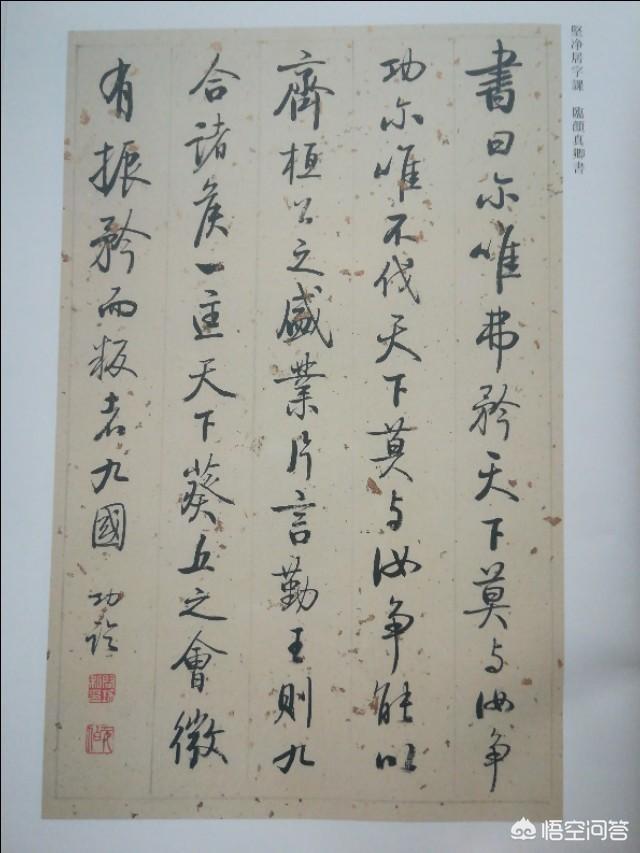 堅净居字課　臨顏真卿書
書曰尔唯弗矜天下莫与汝争
功尔唯不伐天下莫与汝争能以
齊桓公之盛業片言勤王則九
合諸侯一匡天下葵丘之會微
有振矜而叛者九國
功临
悟空问答